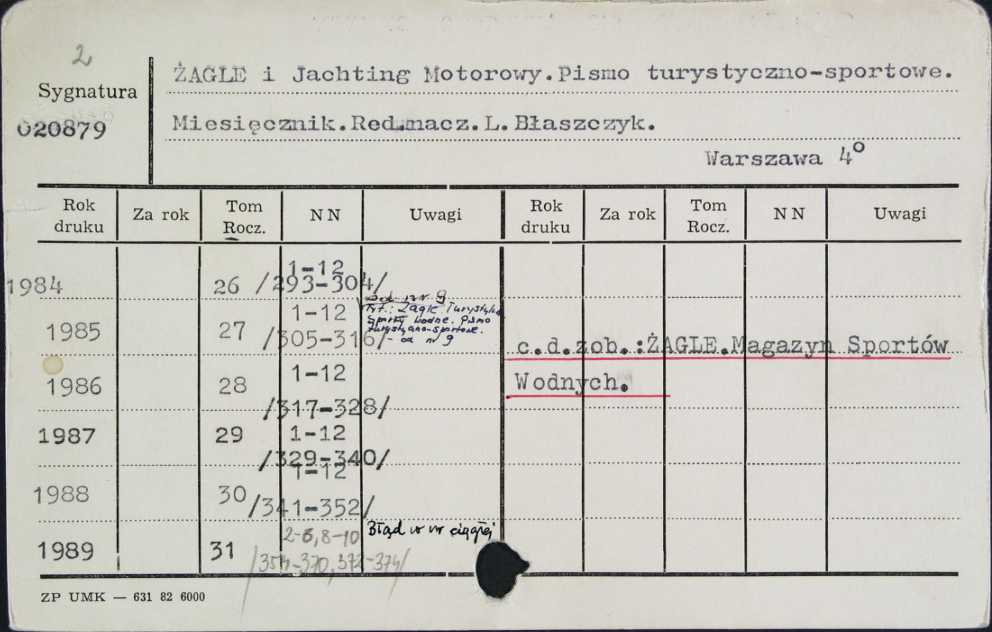 2
Sygnatura
020879
ŻAGLE i Jachting Motorowy.Pismo turystyczno-sportowe.
Miesięcznik.Red.nacz.L.Błaszczyk.
Warszawa 4°
Rok druku Za rok Tom Rocz. NN Uwagi Rok druku Za rok Tom Rocz. NN Uwagi
1984 26 1-12 /293-304/
1985 27 1-12 /305-316/
nr 9
Tyt.: Żagle Turystyka
Sporty Wodne. Pismo
turystyczno-sportowe.
- od nr 9
c.d.zob.:ŻAGLE.Magazyn Sportów
Wodnych.
1986 28 1-12 /317-328/
1987 29 1-12 /329-340/
1988 30 1-12 /341-352/
1989 31 2-6,8-10
Błąd w nr ciągłej
ZP UMK — 631 82 6000